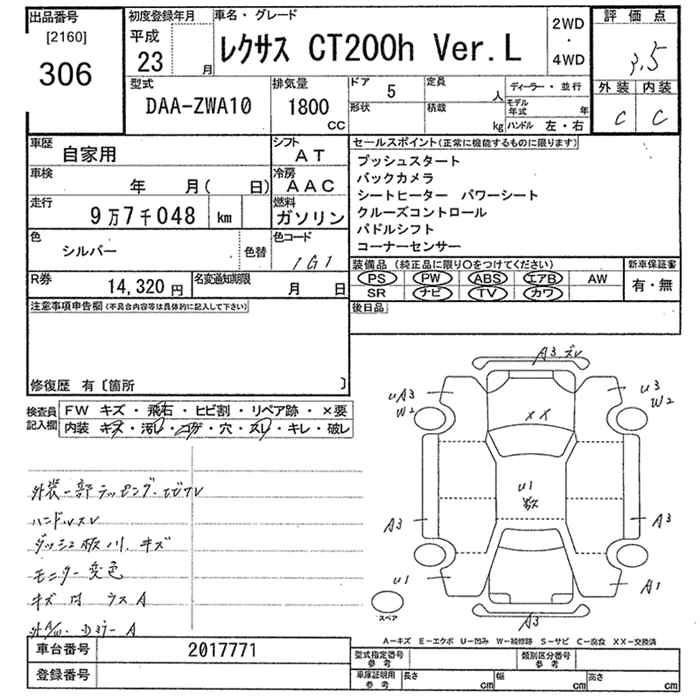 出品番号
[2160]
306
初度登録年月
平成
23 月
車名・グレード
レクサス CT200h Ver.L
2WD
・
4WD
評価点
3.5
外装 内装
C C
型式
DAA-ZWA10
排気量
1800
CC
ドア
5
定員
人
形状
積載
kg
ディーラー・並行
モデル年式 年
ハンドル 左・右
車歴
自家用
シフト
AT
車検
年 月( 日)
冷房
AAC
走行
9万7千048 km
燃料
ガソリン
色
シルバー
色替
色コード
1G1
R券
14,320 円
名変通知期限
月 日
セールスポイント(正常に機能するものに限ります)
プッシュスタート
バックカメラ
シートヒーター パワーシート
クルーズコントロール
パドルシフト
コーナーセンサー
装備品 (純正品に限り○をつけてください)
PS PW ABS エアB AW
SR ナビ TV カワ
新車保証書
有・無
後日品
注意事項申告欄(不具合内容等は具体的に記入して下さい)
修復歴 有〔箇所 〕
検査員記入欄
FW キズ・飛石・ヒビ割・リペア跡・×要
内装 キズ・汚レ・コゲ・穴・スレ・キレ・破レ
外装一部ラッピング
ハンドルスレ
キズ
モニター変色
A3
uA3
W2
u3
W2
XX
u1
A3
A3
u1
A1
A3
スペア
A-キズ E-エクボ U-凹み W-補修跡 S-サビ C-腐食 XX-交換済
車台番号
2017771
登録番号
型式指定番号
参考
類別区分番号
参考
車庫証明用
参考
長さ cm
幅 cm
高さ cm